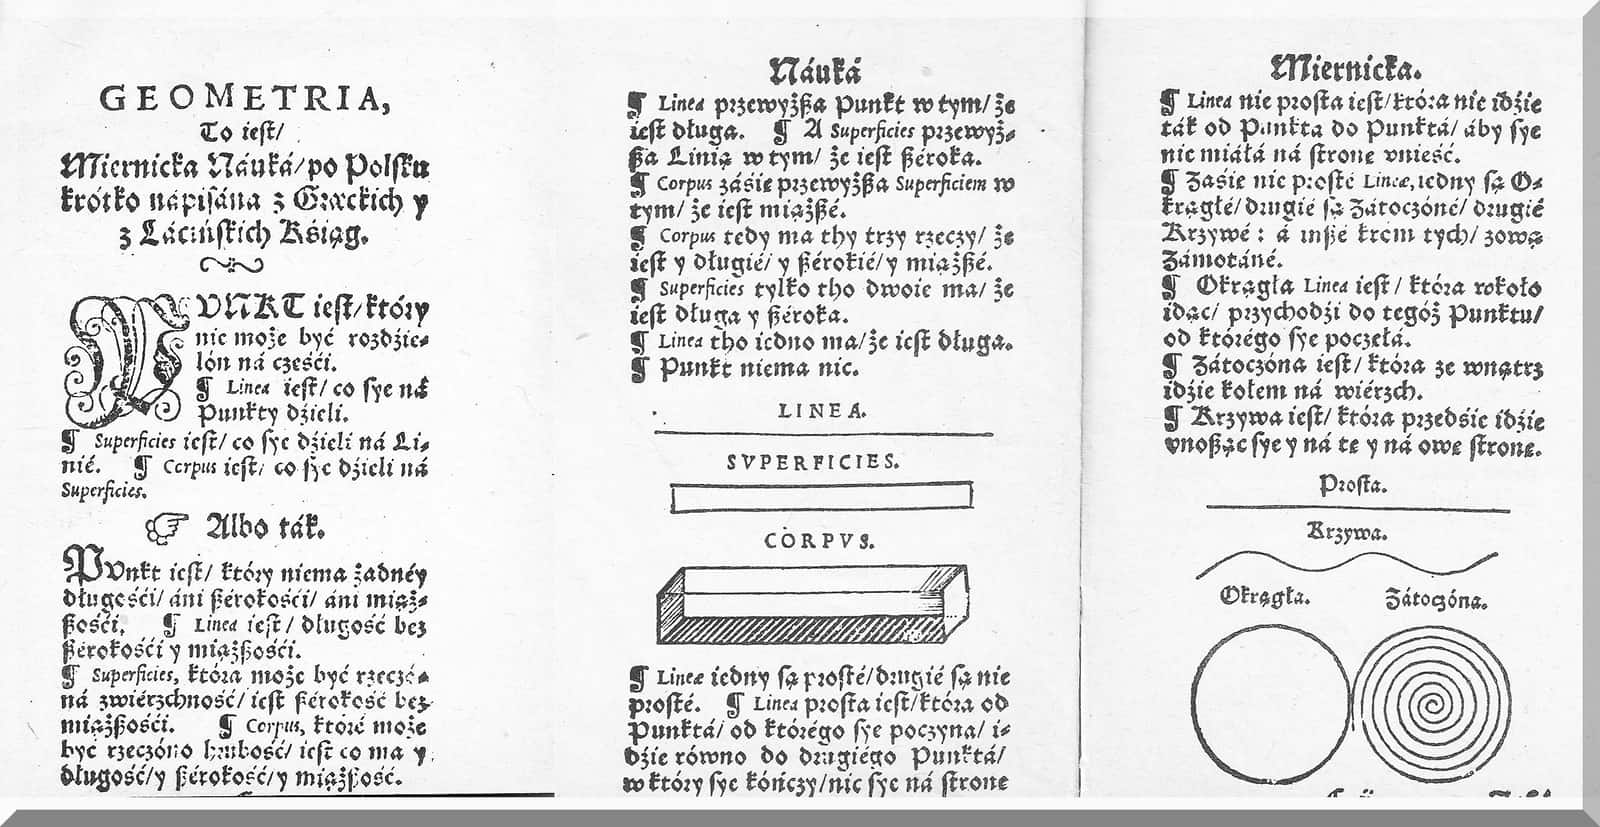 GEOMETRIA,
To ieſt/
Miernicka Náuká/po Polſku
krotko nápiſána z Græckich y
z Láćińſkich Kśiąg.
PVNKT ieſt/który
nie może być rozdźie⸗
lón ná częśći.
¶ Linea ieſt/ co ſye ná
Punkty dźieli.
¶ Superficies ieſt/ co ſye dźieli ná Li⸗
nié. ¶ Corpus ieſt/ co ſye dźieli ná
Superficies.
☞ Albo ták.
PVnkt ieſt/ który niema żadnéy
długośći/ áni ßérokośći/ áni miąż⸗
ßośći. ¶ Linea ieſt/ długość bez
ßérokośći y miążßośći.
¶ Superficies, która może być rzeczó⸗
ná zwiérzchność/ ieſt ßérokość bez
miążßośći. ¶ Corpus, które może
być rzeczóno hrubość/ ieſt co ma y
długość/y ßérokość/y miążßość.
Náuká
¶ Linea przewyżßa Punkt w tym/ że
ieſt długa. ¶ A Superficies przewyż⸗
ßa Linią w tym/ że ieſt ßéroka.
¶ Corpus záśie przewyżßa Superficiem w
tym/ że ieſt miążßé.
¶ Corpus tedy ma thy trzy rzeczy/ że
ieſt y długié/ y ßérokié/ y miążßé.
¶ Superficies tylko tho dwoie ma/ że
ieſt długa y ßéroka.
¶ Linea tho iedno ma/ że ieſt długa.
¶ Punkt niema nic.
LINEA.
SVPERFICIES.
CORPVS.
¶ Lineæ iedny ſą proſté/drugié ſą nie
proſté. ¶ Linea proſta ieſt/która od
Punktá/ od którégo ſye poczyna/ i⸗
dźie równo do drugiégo Punktá/
w który ſye kóńczy/nic ſye ná ſtronę
Miernicka.
¶ Linea nie proſta ieſt/która nie idźie
ták od Punkta do Punktá/ áby ſye
nie miáłá ná ſtronę vnieść.
¶ Záśie nie proſté Lineæ, iedny ſą O⸗
krągłé/ drugié ſą Zátoczóné/ drugié
Krzywé : á inßé krom tych/ zową
Zámotáné.
¶ Okrągła Linea ieſt / która wokoło
idąc/ przychodźi do tegóż Punktu/
od którégo ſye poczęłá.
¶ Zátoczóna ieſt/ która ze wnątrz
idźie kołem ná wiérzch.
¶ Krzywa ieſt/ która przedśie idźie
vnoßąc ſye y ná tę y ná owę ſtronę.
Proſta.
Krzywa.
Okrągła. Zátoczóna.